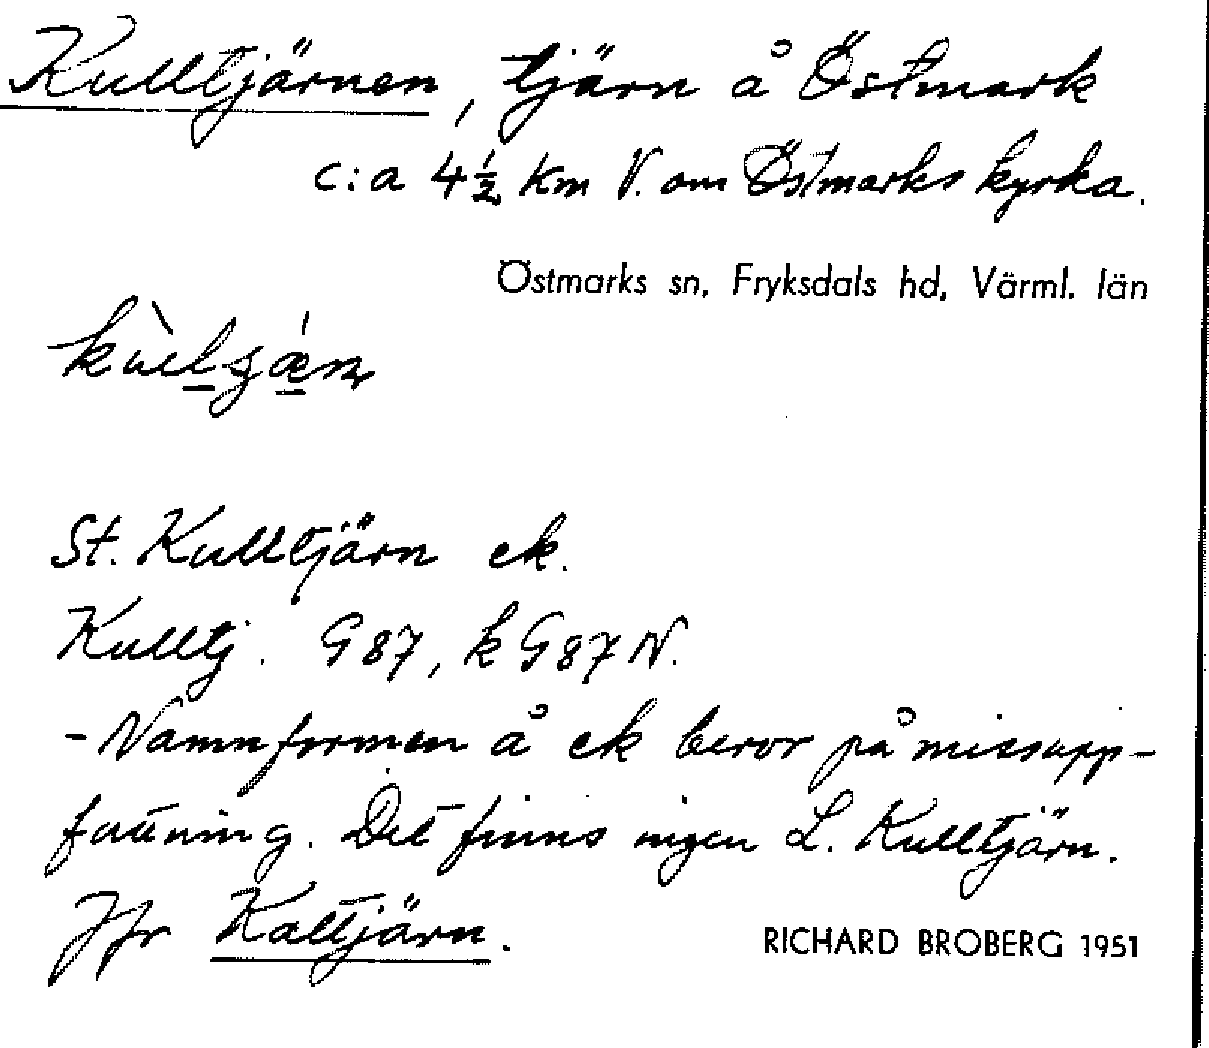 Kulltjärnen, tjärn å Östmark
c:a 4½ km V. om Östmarks kyrka.
Östmarks sn, Fryksdals hd, Värml. län
St. Kulltjärn ek.
Kulltj. G87, k G87 N.
- Namnformen å ek beror på missupp-
fattning. Det finns ingen L. Kulltjärn.
Jfr Kaltjärn.
RICHARD BROBERG 1951